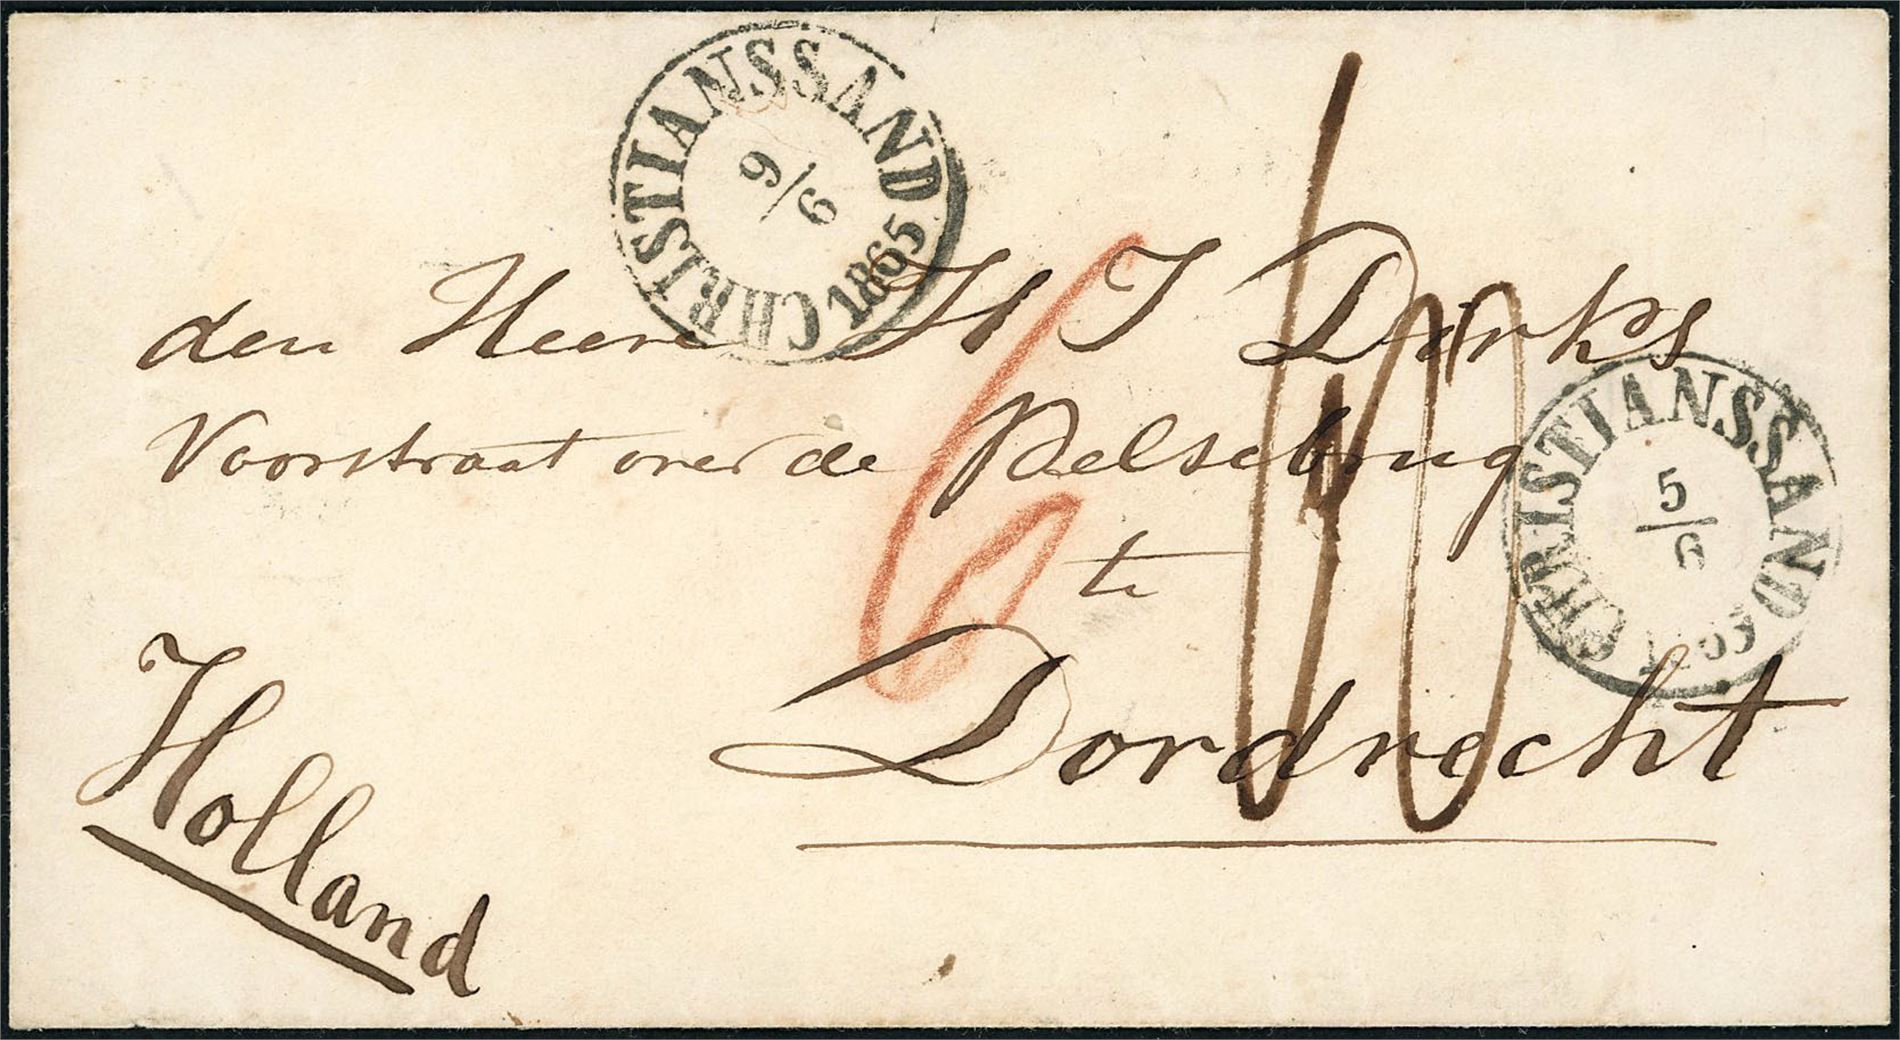 CHRISTIANSSAND
9/6
1865
den Heere H J Dirks
Voorstraat over de Pelsebrug
te
Dordrecht
Holland
CHRISTIANSSAND
5/6
6